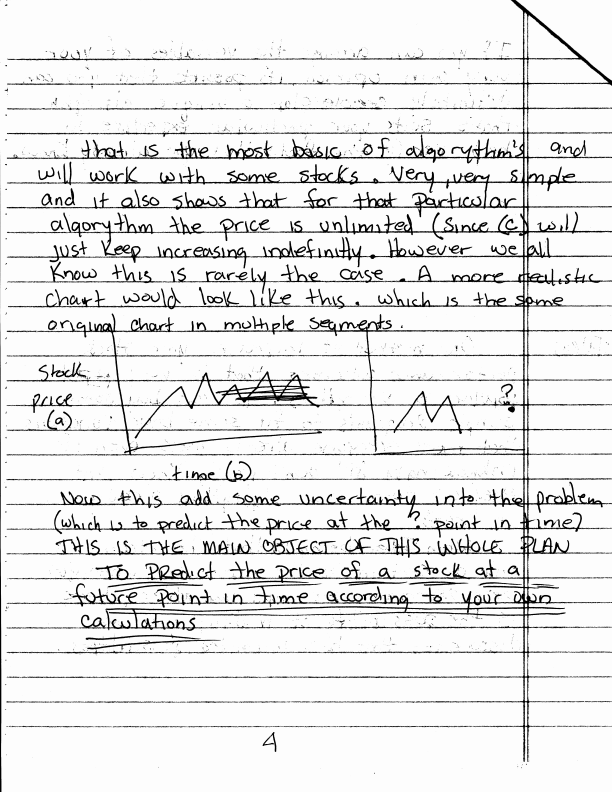 that is the most basic of algorythm's and
will work with some stocks. Very, very simple
and it also shows that for that particular
algorythm the price is unlimited (Since (C) will
just keep increasing indefinitly. However we all
Know this is rarely the case. A more realistic
chart would look like this. which is the same
original chart in multiple segments.
Stock
price
(a)
?
time (b)
Now this add some uncertainty into the problem
(which is to predict the price at the ? point in time)
THIS IS THE MAIN OBJECT OF THIS WHOLE PLAN
TO PREdict the price of a stock at a
future point in time according to your own
calculations
4